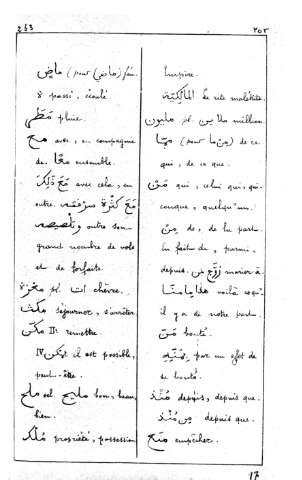 263 ٢٥٢
ماضٍ (pour ماضِي) fém.
ة passé, écoulé.
مَطَر pluie.
مع avec, en compagnie
de. مَعًا ensemble.
مَعَ ذَلِكَ avec cela, en
outre. مَعَ كثرة سرقته
outre son
grand nombre de vols
et de forfaits.
pl. ات chèvre.
مكث séjourner, s'arrêter.
مكّن II remettre.
IV يمكن il est possible,
peut-être.
ملح sel. مليح bon, beau,
bien.
مُلْك propriété, possession
l'empire.
المالكيّة le rite malékite.
مليون pl. ملايين million
مِمّا (pour مِن ما) de ce
qui, de ce que.
مَن qui, celui qui, qui-
conque, quelqu'un.
مِن de, de la part
du fait de, parmi,
depuis. زوّج من marier à
هذا ما منّا voilà ce qu'
il y a de notre part.
مَنّ bonté.
بمنّه par un effet de
sa bonté.
مُنذ depuis, depuis que.
مِن مُنذ depuis que.
منع empêcher.
17